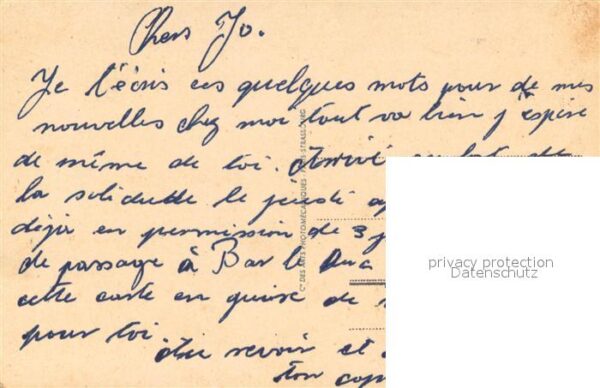 Chers Jo.
Je t'écris ces quelques mots pour de mes
nouvelles chez moi tout va bien j'espère
de même de toi. Arrivé au but de
la soliditte le jeudi
déjà en permission de 3 j
de passage à Bar le Duc
cette carte en guise de
pour toi.
Au revoir et
ton cop
Cie DES ARTS PHOTOMÉCANIQUES - PARIS-STRASBOURG
privacy protection
Datenschutz